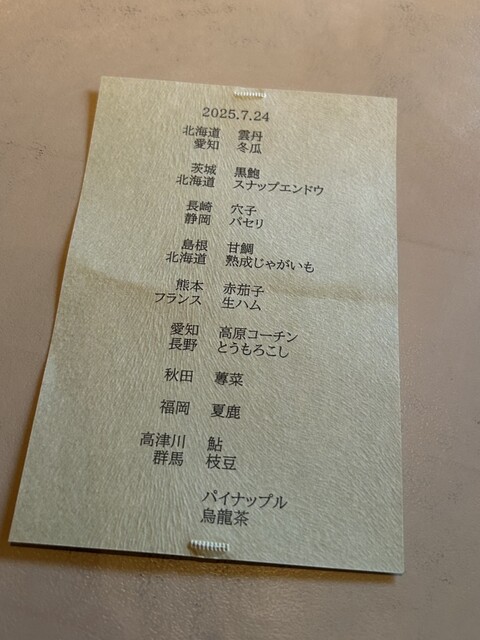 2025.7.24
北海道 雲丹
愛知 冬瓜
茨城 黒鮑
北海道 スナップエンドウ
長崎 穴子
静岡 パセリ
島根 甘鯛
北海道 熟成じゃがいも
熊本 赤茄子
フランス 生ハム
愛知 高原コーチン
長野 とうもろこし
秋田 蓴菜
福岡 夏鹿
高津川 鮎
群馬 枝豆
パイナップル
烏龍茶